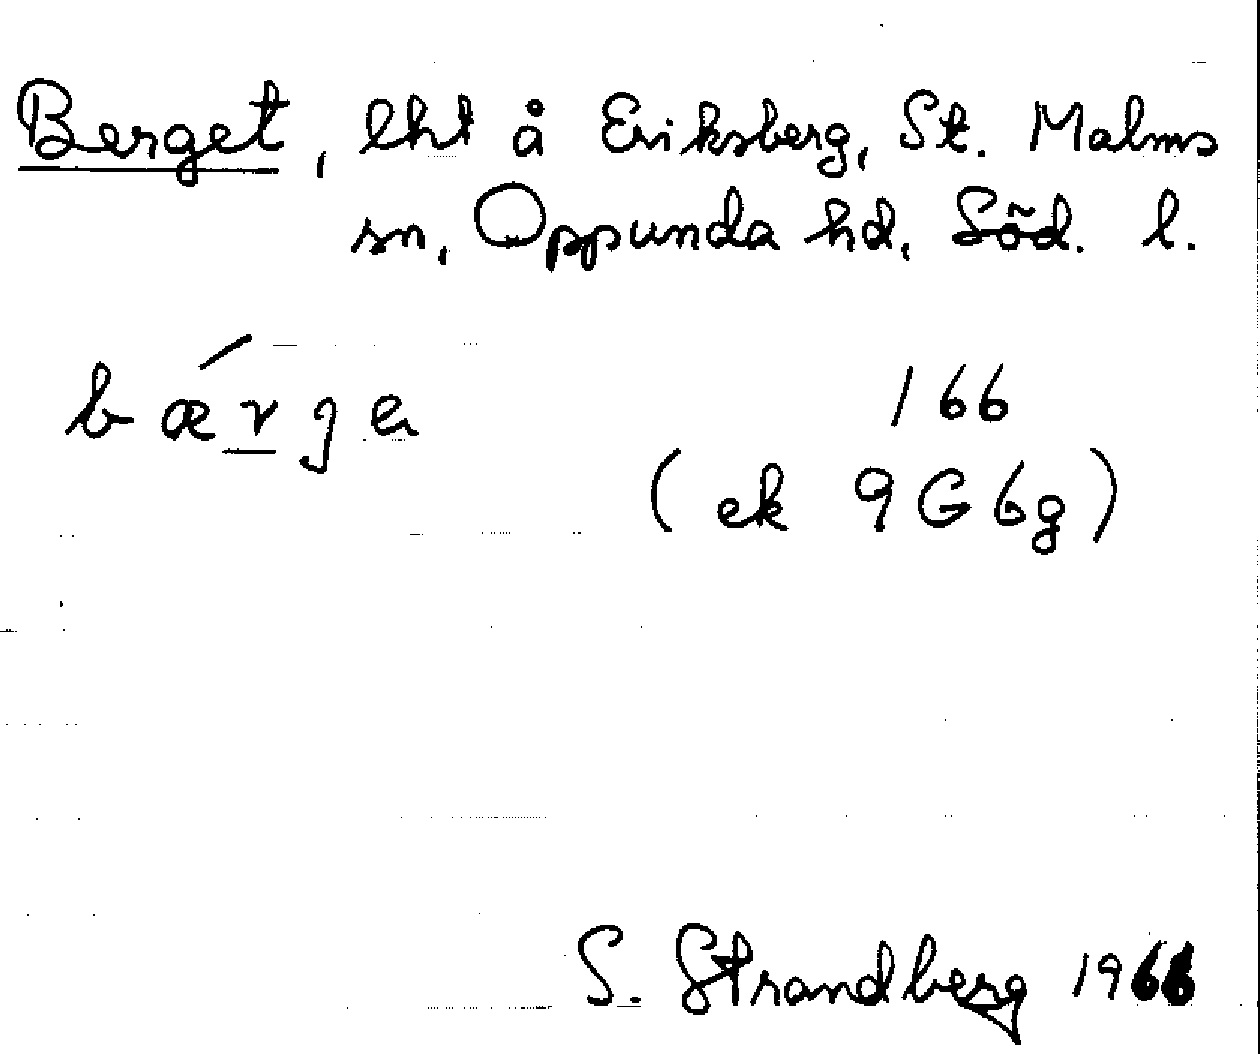 Berget, lht å Eriksberg, St. Malms
sn, Oppunda hd, Söd. l.
bǽrgɐ 166
(ek 9G6g)
S. Strandberg 1966